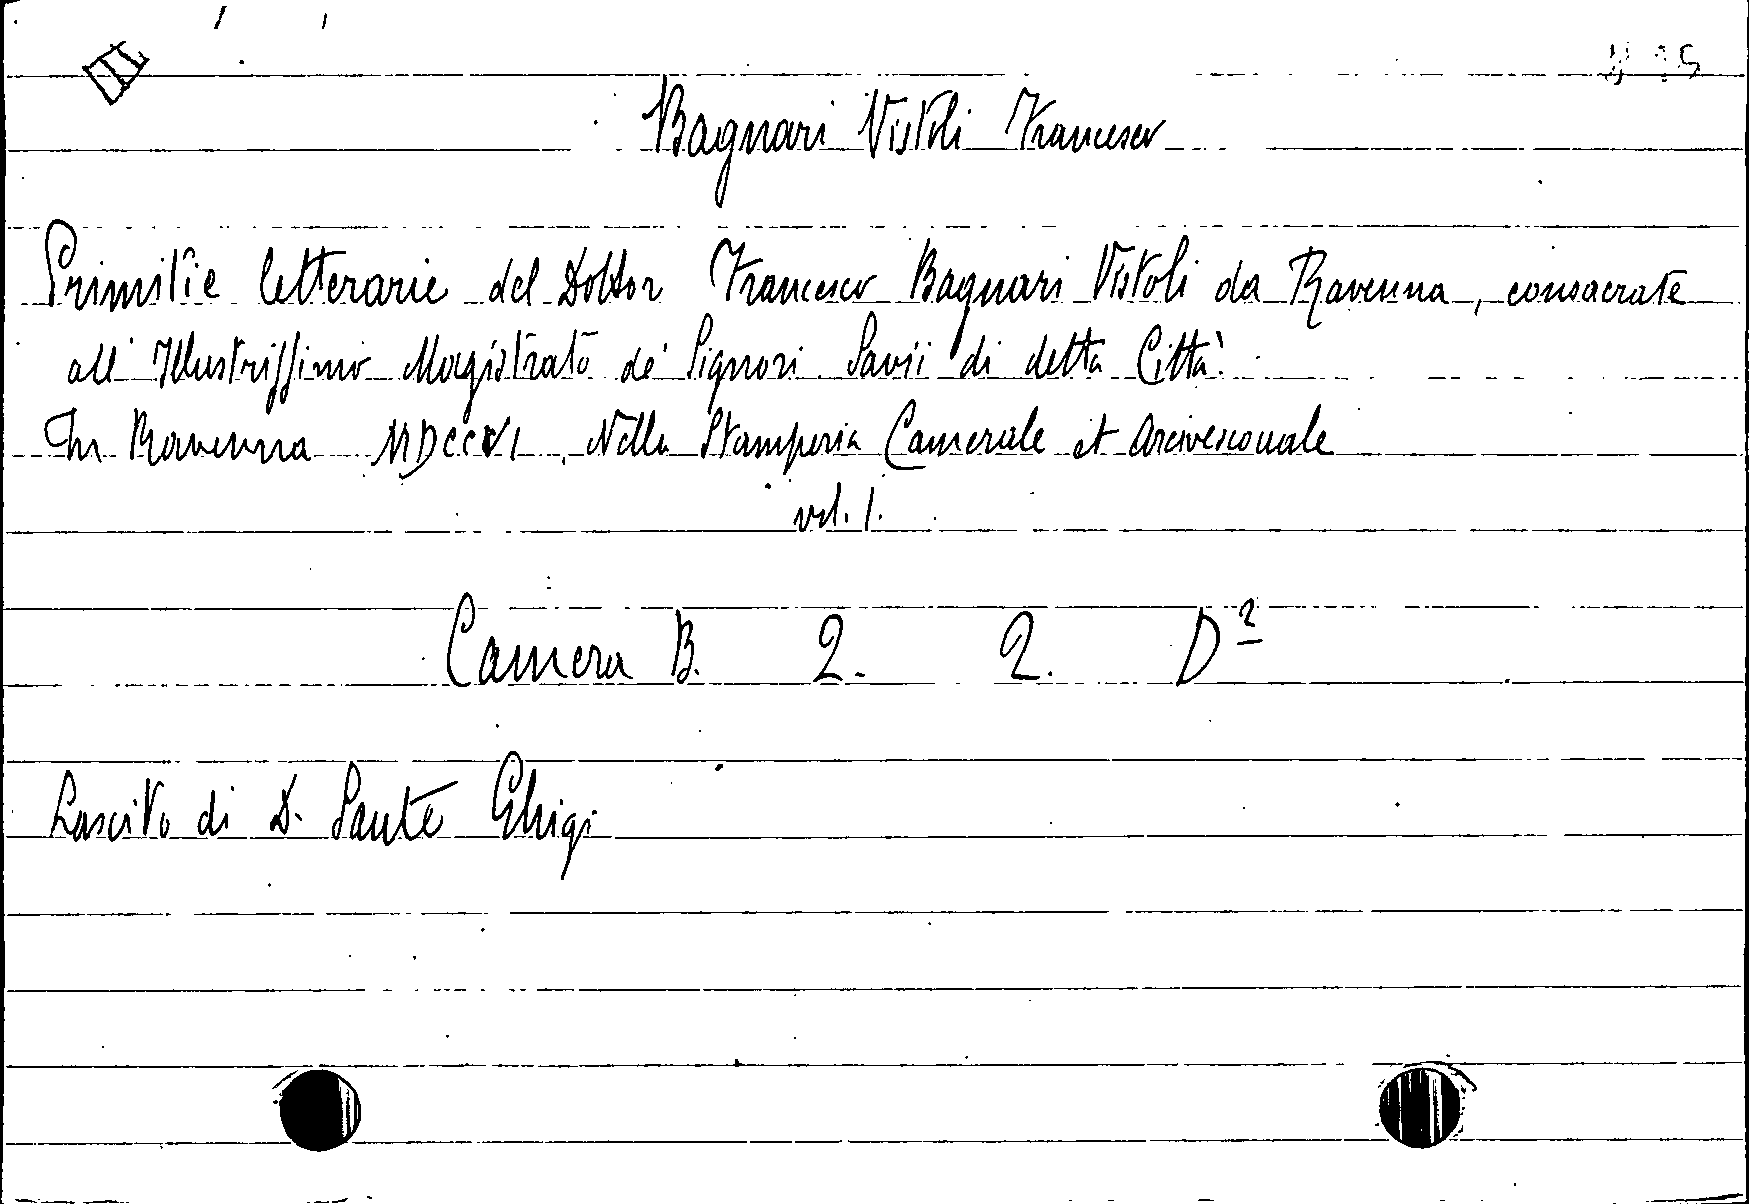 Bagnari Vistoli Francesco
Primitie letterarie del Dottor Francesco Bagnari Vistoli da Ravenna, consacrate
all' Illustrissimo Magistrato de' Signori Savii di detta Città.
In Ravenna MDCCVI. Nella Stamperia Camerale et Arcivescouale
vol. 1.
Camera B. 2. 2. D²
Lascito di D. Sante Ghigi